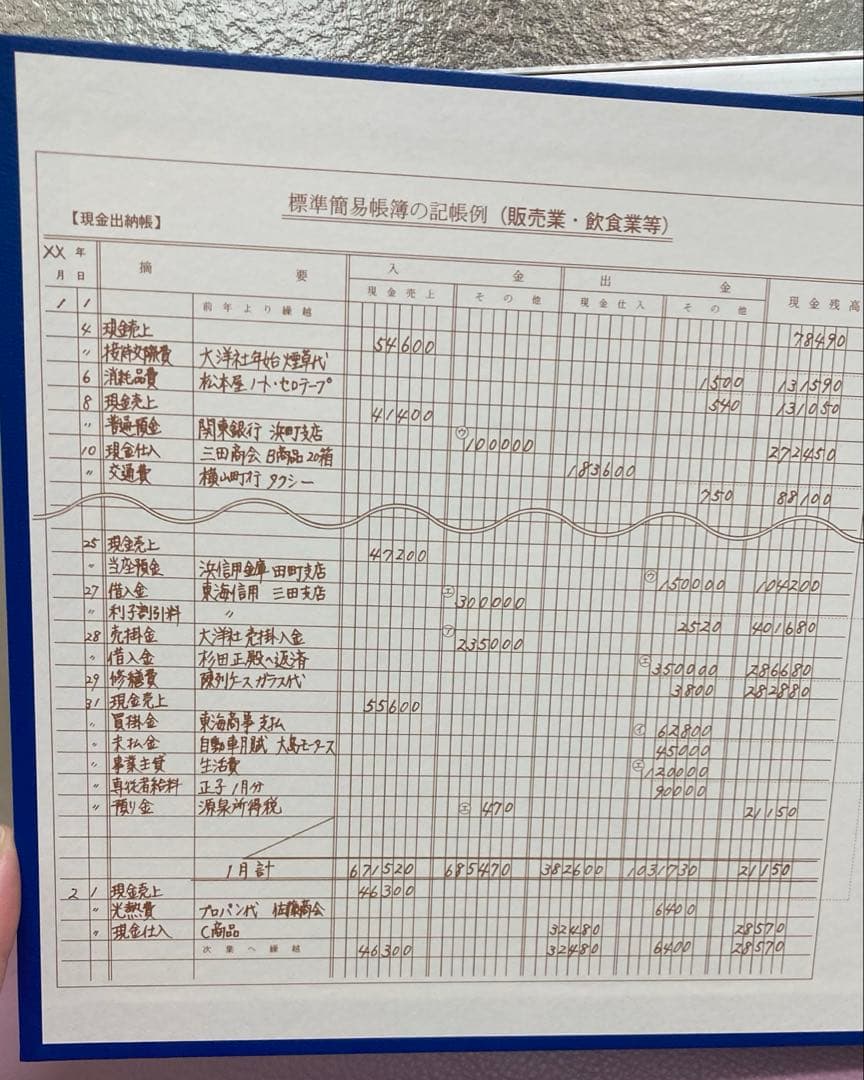 標準簡易帳簿の記帳例（販売業・飲食業等）
【現金出納帳】
XX 年 摘 要 入 金 出 金 現金残高
月 日 現金売上 その他 現金仕入 その他
1 1 前年より繰越 78490
4 現金売上 54600
〃 接待交際費 大洋社年始煙草代 1500 131590
6 消耗品費 松本屋ノート・セロテープ 540 131050
8 現金売上 41400
〃 普通預金 関東銀行 浜町支店 ㋒100000 272450
10 現金仕入 三田商会 B商品20箱 183600
〃 交通費 横山町行 タクシー 750 88100
25 現金売上 47200
〃 当座預金 浜信用金庫 田町支店 ㋒150000 104200
27 借入金 東海信用 三田支店 ㋓300000
〃 利子割引料 〃 2520 401680
28 売掛金 大洋社売掛入金 ㋐235000
〃 借入金 杉田正殿へ返済 ㋓350000 286680
29 修繕費 陳列ケースガラス代 3800 282880
31 現金売上 55600
〃 買掛金 東海商事支払 ㋑62800
〃 未払金 自動車月賦 大島モータース 45000
〃 事業主貸 生活費 ㋓120000
〃 専従者給料 正子1月分 90000
〃 預り金 源泉所得税 ㋓470 21150
1月計 671520 685470 382600 1031730 21150
2 1 現金売上 46300
〃 光熱費 プロパン代 佐藤商会 6400
〃 現金仕入 C商品 32480 28570
次葉へ繰越 46300 32480 6400 28570